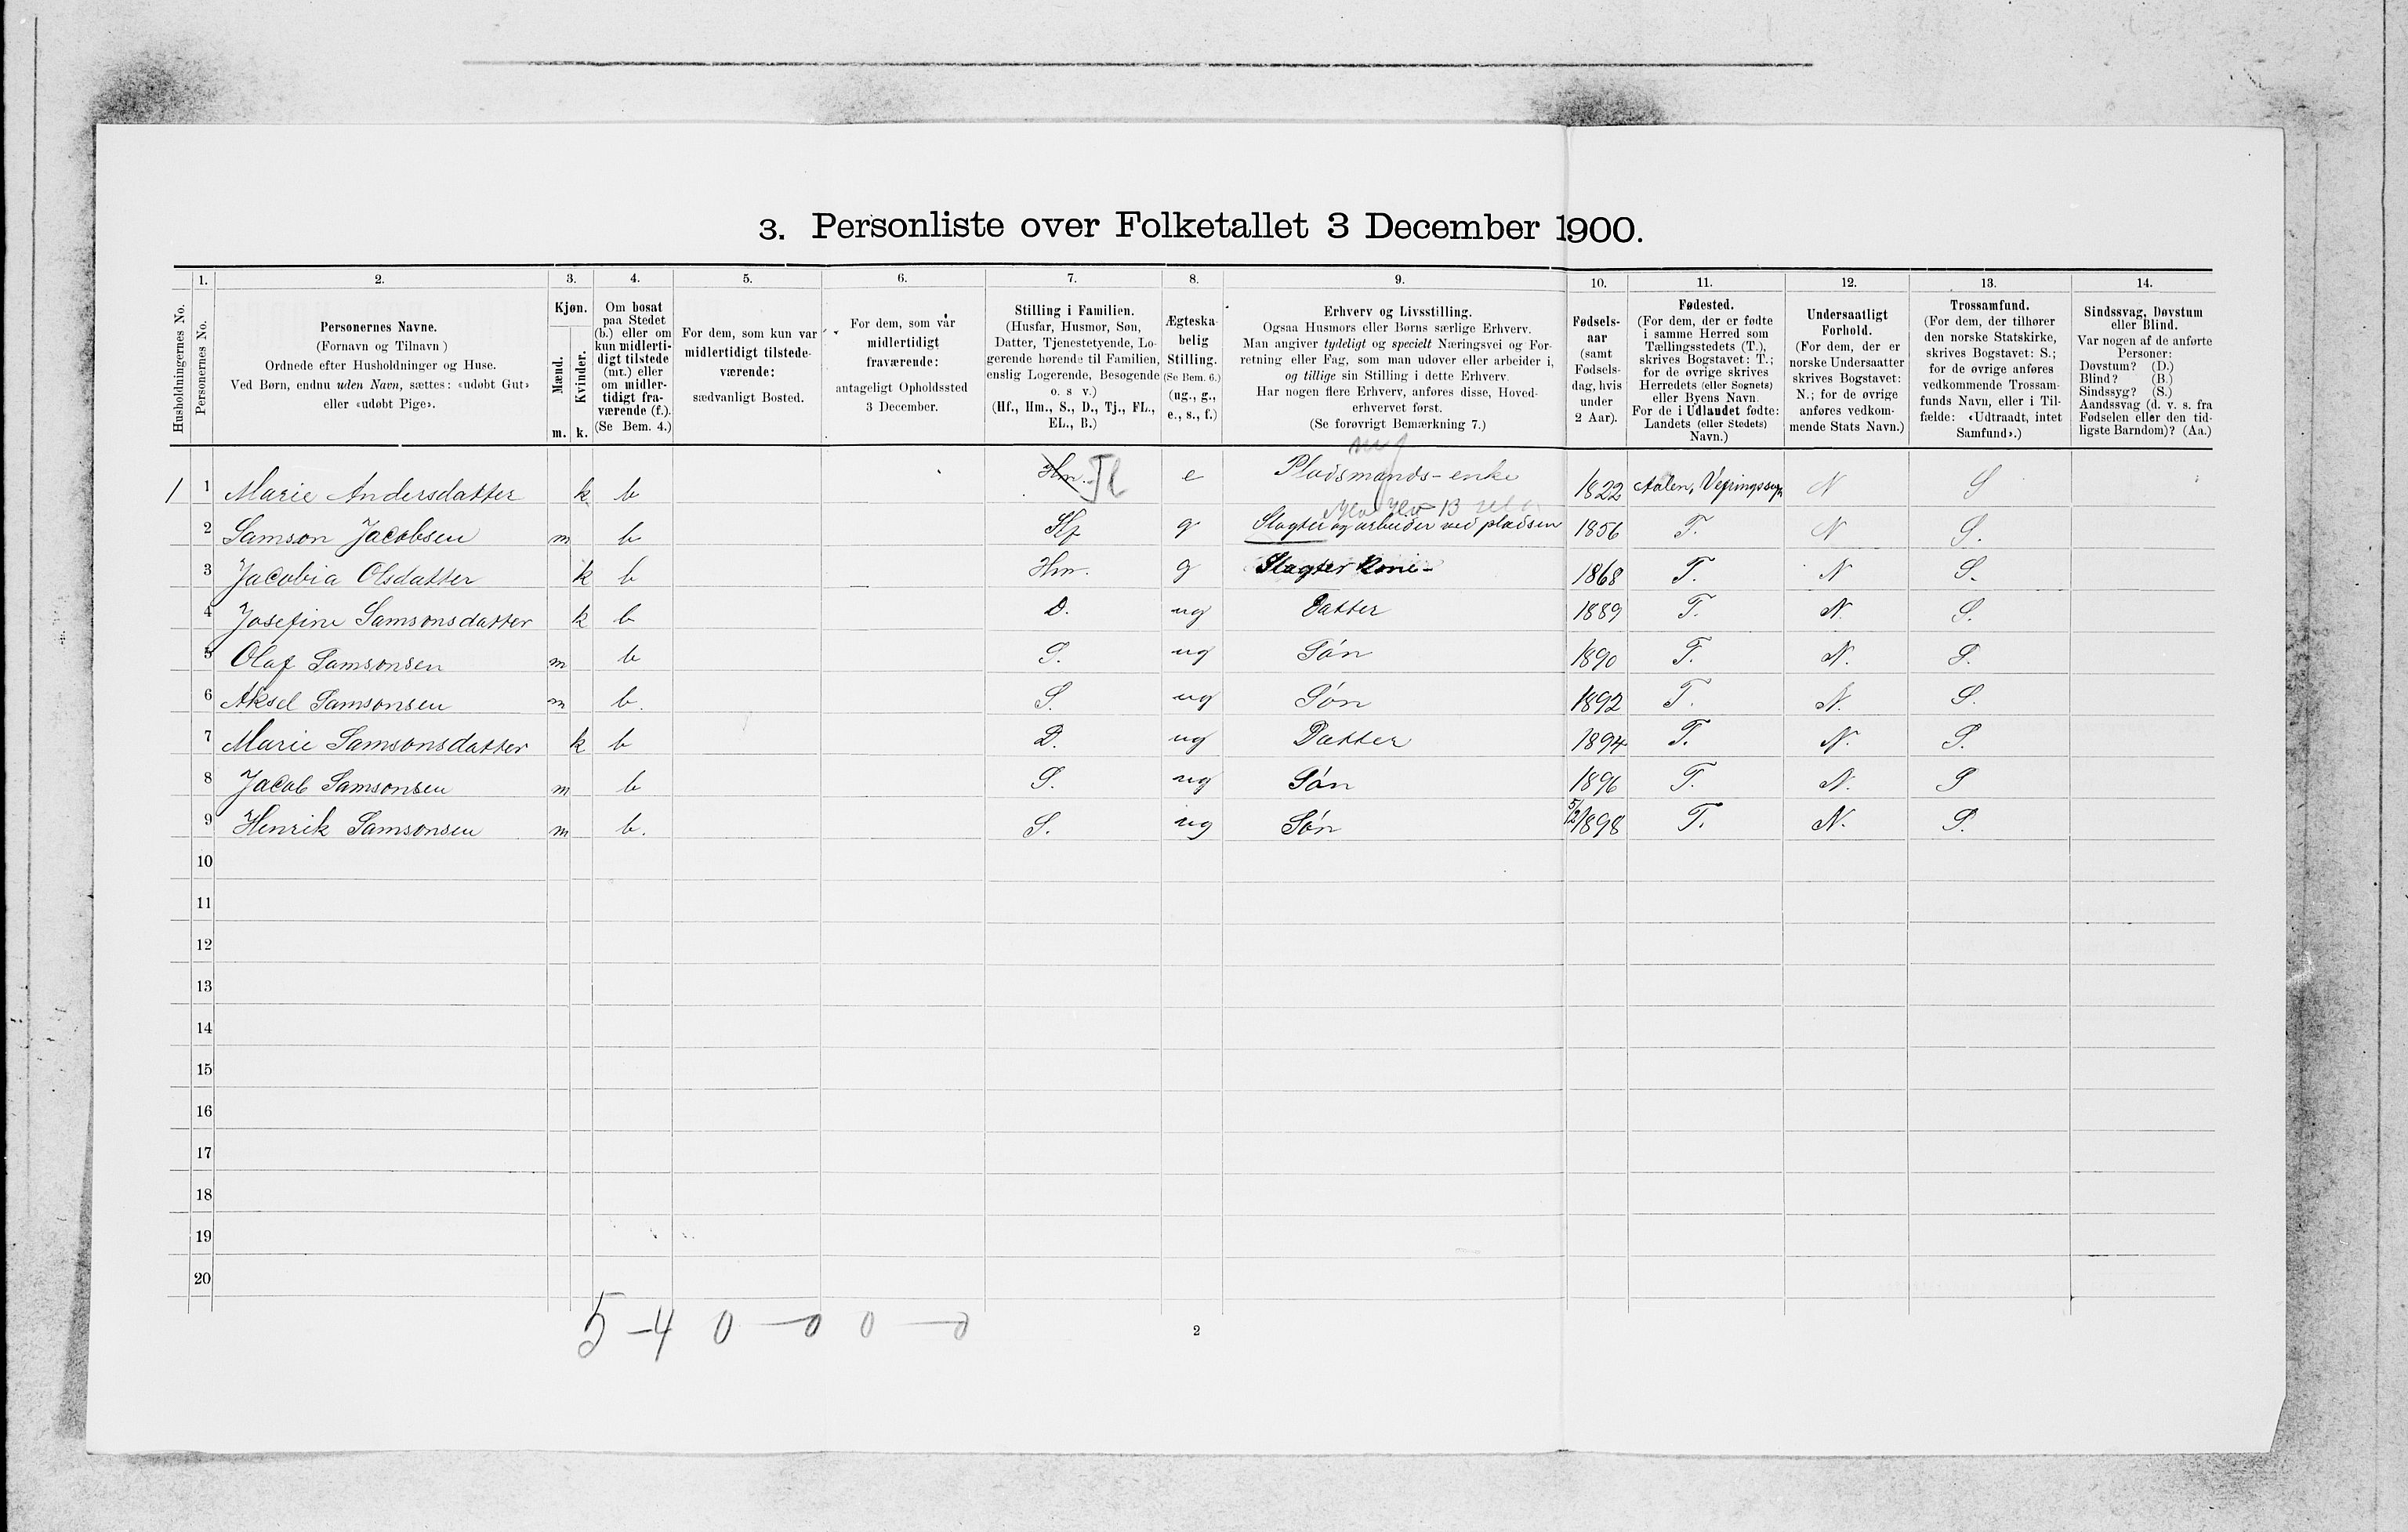 3. Personliste over Folketallet 3 December 1900.
Husholdningernes No.
1.
Personernes No.
2.
Personernes Navne.
(Fornavn og Tilnavn)
Ordnede efter Husholdninger og Huse.
Ved Børn, endnu uden Navn, sættes: «udøbt Gut»
eller «udøbt Pige».
3.
Kjøn.
Mænd.
Kvinder.
m. k.
4.
Om bosat
paa Stedet
(b.) eller om
kun midlerti-
digt tilstede
(mt.) eller
om midler-
tidigt fra-
værende (f.).
(Se Bem. 4.)
5.
For dem, som kun var
midlertidigt tilstede-
værende:
sædvanligt Bosted.
6.
For dem, som var
midlertidigt
fraværende:
antageligt Opholdssted
3 December.
7.
Stilling i Familien.
(Husfar, Husmor, Søn,
Datter, Tjenestetyende, Lo-
gerende hørende til Familien,
enslig Logerende, Besøgende
o. s v.)
(Hf., Hm., S., D., Tj., FL.,
EL., B.)
8.
Ægteska-
belig
Stilling.
(Se Bem. 6.)
(ug., g.,
e., s., f.)
9.
Erhverv og Livsstilling.
Ogsaa Husmors eller Børns særlige Erhverv.
Man angiver tydeligt og specielt Næringsvei og For-
retning eller Fag, som man udøver eller arbeider i,
og tillige sin Stilling i dette Erhverv.
Har nogen flere Erhverv, anføres disse, Hoved-
erhvervet først.
(Se forøvrigt Bemærkning 7.)
10.
Fødsels-
aar
(samt
Fødsels-
dag, hvis
under
2 Aar).
11.
Fødested.
(For dem, der er fødte
i samme Herred som
Tællingsstedets (T.),
skrives Bogstavet: T.;
for de øvrige skrives
Herredets (eller Sognets)
eller Byens Navn.
For de i Udlandet fødte:
Landets (eller Stedets)
Navn.)
12.
Undersaatligt
Forhold.
(For dem, der er
norske Undersaatter
skrives Bogstavet:
N.; for de øvrige
anføres vedkom-
mende Stats Navn.)
13.
Trossamfund.
(For dem, der tilhører
den norske Statskirke,
skrives Bogstavet: S.;
for de øvrige anføres
vedkommende Trossam-
funds Navn, eller i Til-
fælde: «Udtraadt, intet
Samfund».)
14.
Sindssvag, Døvstum
eller Blind.
Var nogen af de anførte
Personer:
Døvstum? (D.)
Blind? (B.)
Sindssyg? (S.)
Aandssvag (d. v. s. fra
Fødselen eller den tid-
ligste Barndom)? (Aa.)
1 1 Marie Andersdatter k b Hm. Fl e Pladsmands-enke 1822 N S
2 Samson Jacobsen m b Hf g Slagter og arbeider ved pladsen 1856 T. N S.
3 Jacobia Olsdatter k b Hm. g Slagter Kone- 1868 T. N S.
4 Josefine Samsonsdatter k b D. ug Datter 1889 T. N. S.
5 Olaf Samsonsen m b S. ug Søn 1890 T. N. S.
6 Aksel Samsonsen m b. S. ug Søn 1892 T. N. S.
7 Marie Samsonsdatter k b D. ug Datter 1894 T. N. S.
8 Jacob Samsonsen m b S. ug Søn 1896 T. N. S
9 Henrik Samsonsen m b. S. ug Søn 5/12 1898 T. N. S.
10
11
12
13
14
15
16
17
18
19
20
5-4 0-0 0-0
2